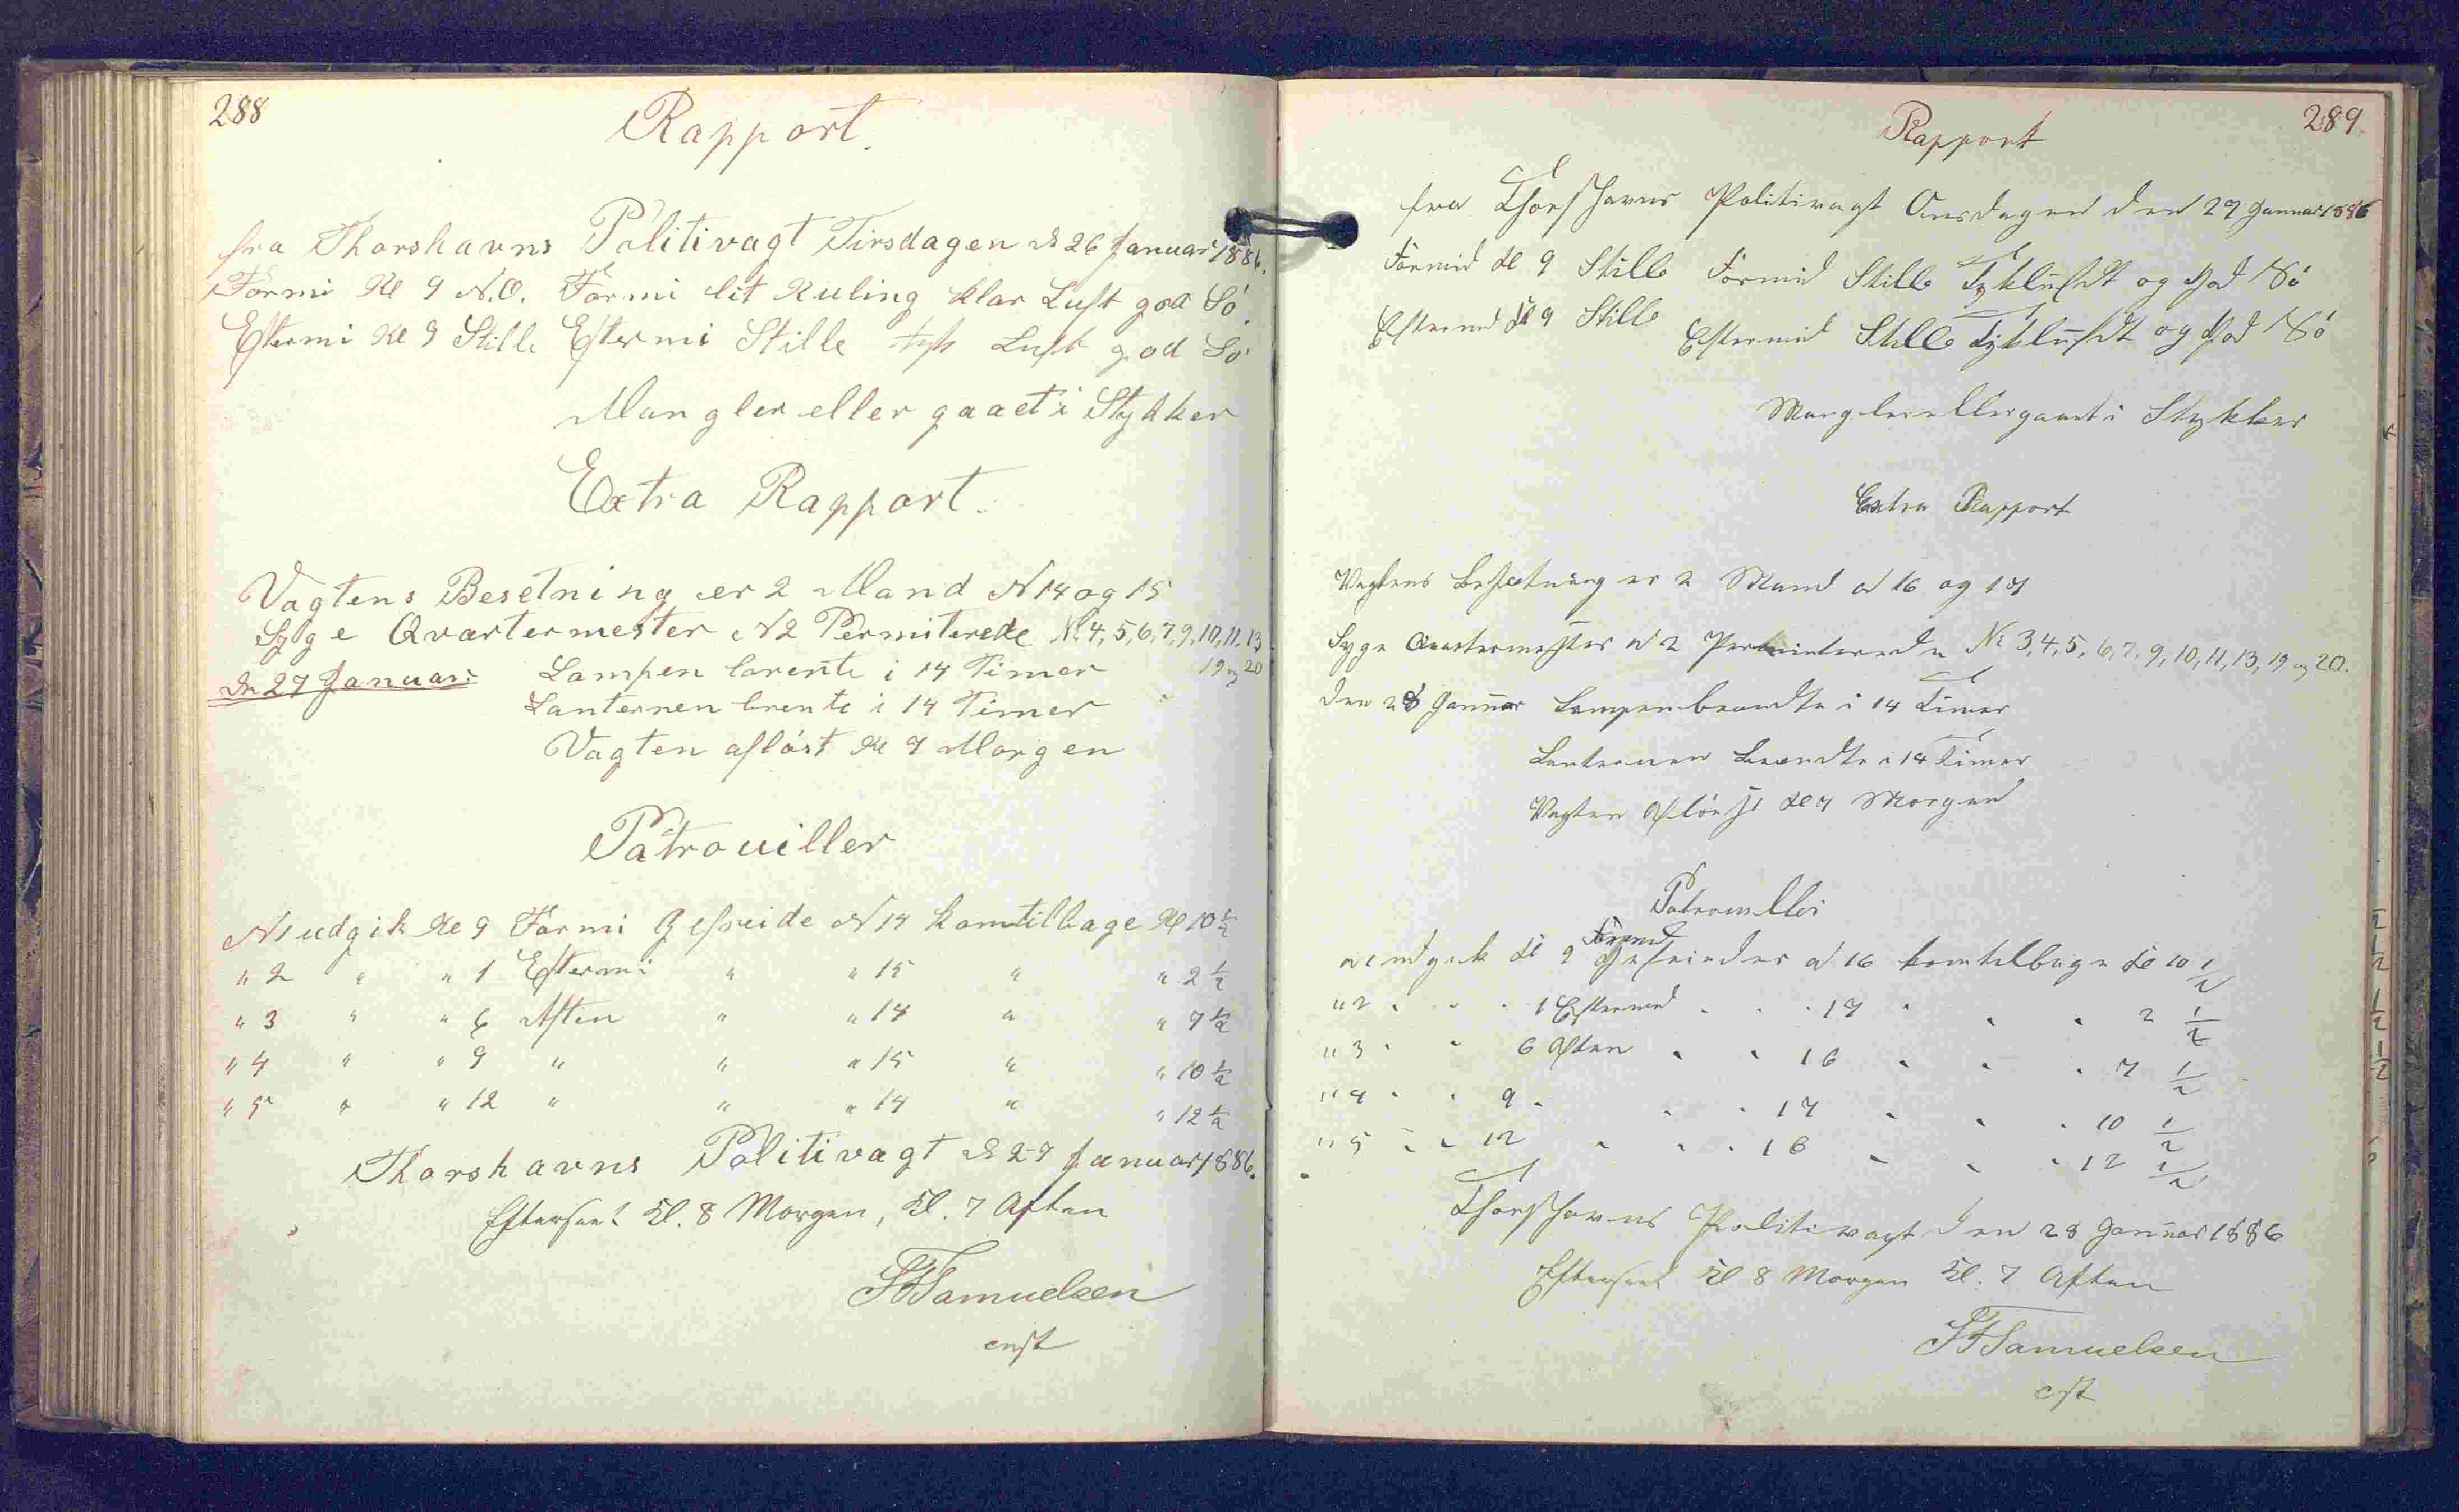 288
Rapport.
fra Thorshavns Politivagt Tirsdagen d 26 Januar 1886.
Formi Kl 9 N.O. Formi lit Kuling klar Luft god Sö.
Eftermi Kl 9 Stille Eftermi Stille tyk Luft god Sö
Mangler eller gaaet i Stykker
Extra Rapport.
Vagtens Besetning er 2 Mand N 14 og 15
Syge Qvartermester N 2 Permiterede No 4, 5, 6, 7, 9, 10, 11, 13
19 og 20
Dn 27 Januar: Lampen brente i 14 Timer
Lanternen brente i 14 Timer
Vagten aflöst Kl 7 Morgen
Patrouiller
N 1 udgik Kl 9 Formi Gefreide N 14 kom tilbage Kl 10 1/2
" 2 " " 1 Eftermi " " 15 " " 2 1/2
" 3 " " 6 Aften " " 14 " " 7 1/2
" 4 " " 9 " " " 15 " " 10 1/2
" 5 " " 12 " " " 14 " " 12 1/2
Thorshavns Politivagt d 27 Januar 1886.
Efterseet Kl. 8 Morgen, Kl. 7 Aften
Samuelsen
cnst
289.
Rapport
fra Thorshavns Politivagt Onsdagen den 27 Januar 1886
Formid Kl 9 Stille Formid Stille Tykluft og God Sö
Eftermd Kl 9 Stille Eftermid Stille Tykluft og God Sö
Mangler eller gaaet i Stykker
Extra Rapport
Vagtens Besætning er 2 Mand N 16 og 17
Syge Quartermester N 2 Perminterede No 3, 4, 5, 6, 7, 9, 10, 11, 13, 19 og 20.
Den 28 Januar Lampen brændte i 14 Timer
Lanternen brændte i 14 Timer
Vagten Aflöst Kl 7 Morgen
Patrouller
Formd
N 1 udgik Kl 9 Gefreider N 16 kom tilbage Kl 10 1/2
" 2 " " " 1 Eftermd " " " 17 " " " 2 1/2
" 3 " " 6 Aften " " 16 " " " 7 1/2
" 4 " " 9 " " " 17 " " " 10 1/2
" 5 " " 12 " " " 16 " " " 12 1/2
Thorshavns Politivagt den 28 Januar 1886
Efterseet Kl 8 Morgen Kl. 7 Aften
Samuelsen
cst